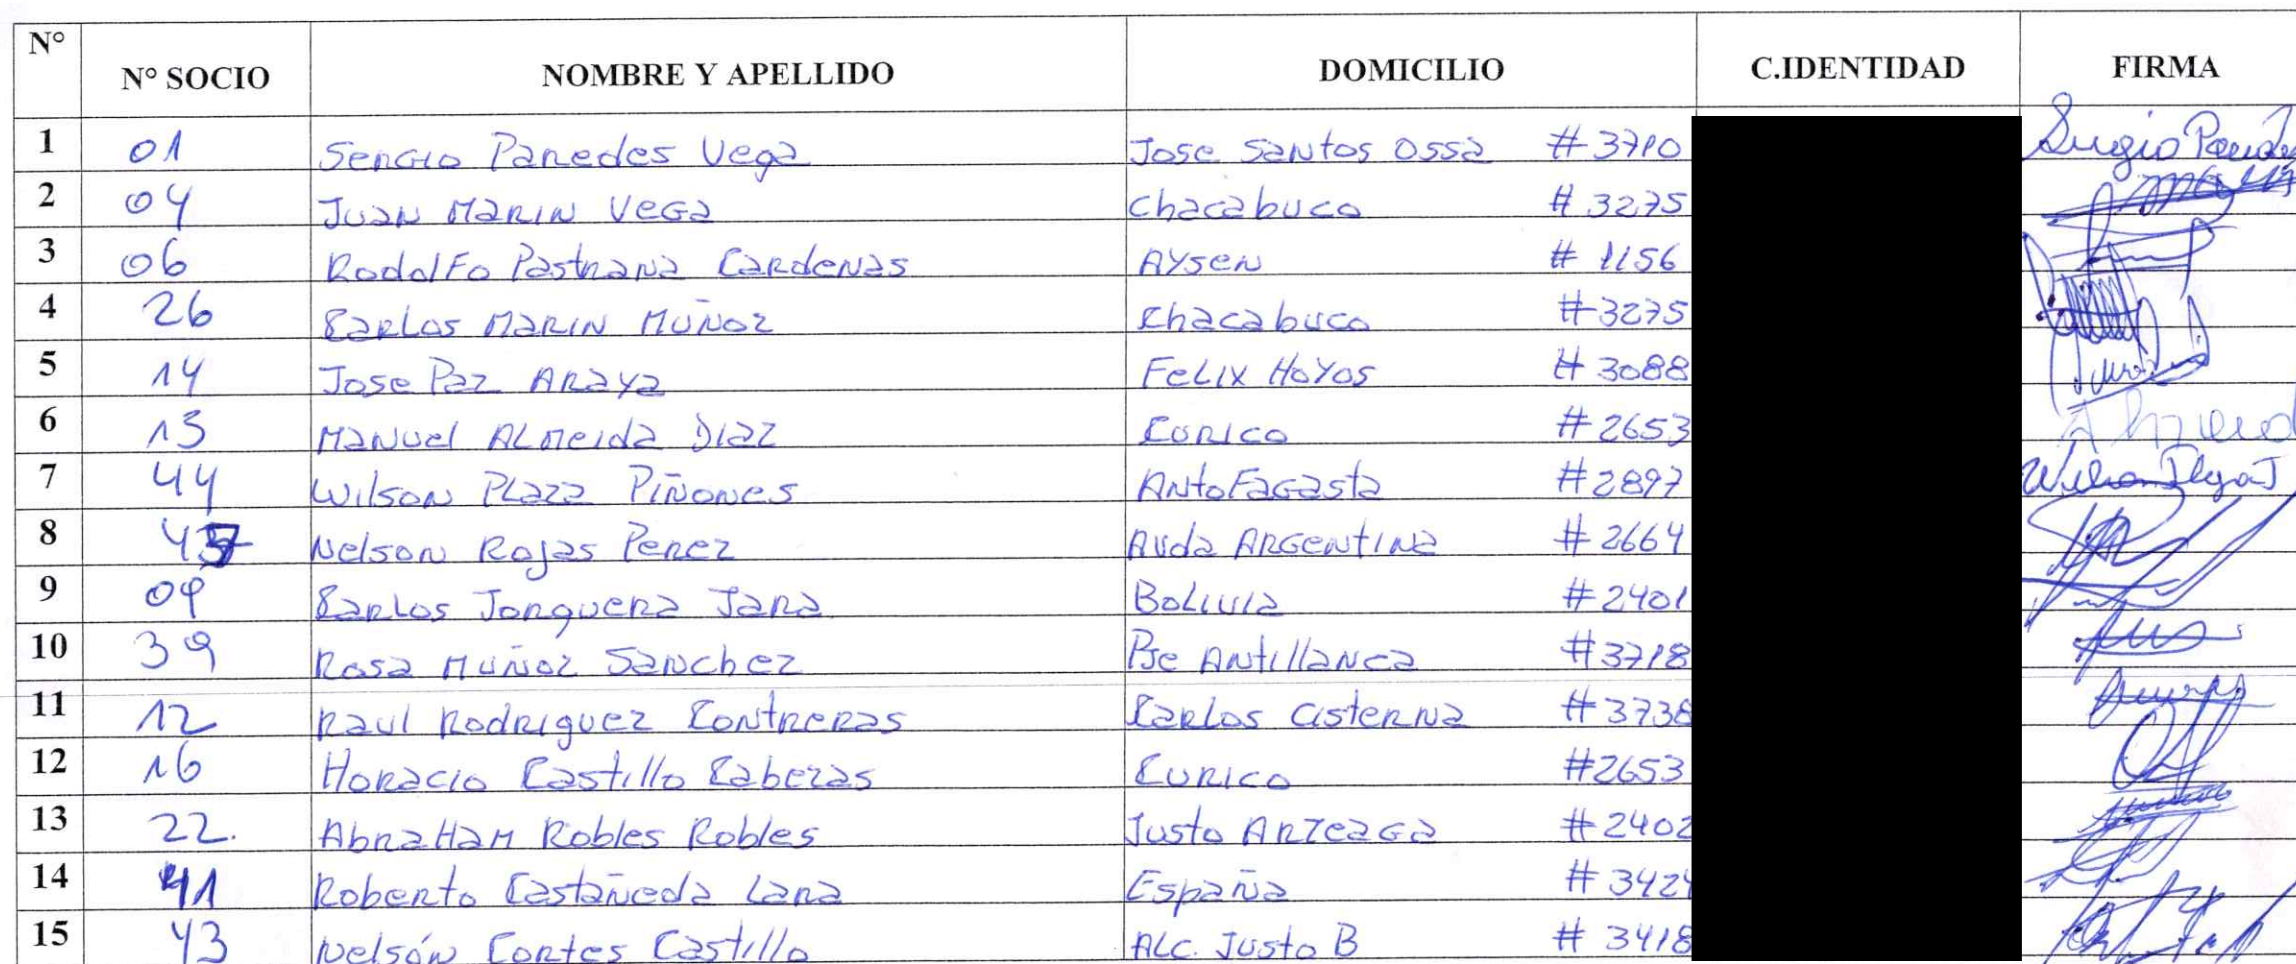 N° N° SOCIO NOMBRE Y APELLIDO DOMICILIO C.IDENTIDAD FIRMA
1 01 Sergio Paredes Vega Jose Santos Ossa #3710
2 04 Juan Marin Vega Chacabuco #3275
3 06 Rodolfo Pastrana Cardenas Aysen #1156
4 26 Carlos Marin Muñoz Chacabuco #3275
5 14 Jose Paz Araya Felix Hoyos #3088
6 13 Manuel Almeida Diaz Curico #2653
7 44 Wilson Plaza Piñones Antofagasta #2897
8 Nelson Rojas Perez Avda Argentina #2664
9 09 Carlos Jorquera Jara Bolivia #2401
10 39 Rosa Muñoz Sanchez Pje Antillanca #3718
11 12 Raul Rodriguez Contreras Carlos Cisterna #3738
12 16 Horacio Castillo Cabezas Curico #2653
13 22. Abraham Robles Robles Justo Arteaga #2402
14 41 Roberto Castañeda Lara España #3424
15 43 Nelsón Cortes Castillo Alc. Justo B #3418